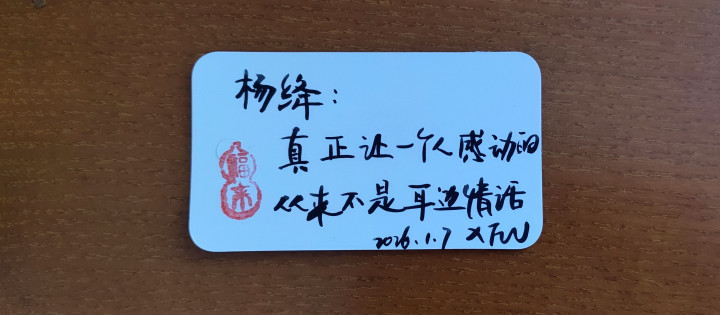 杨绛：
真正让一个人感动的
从来不是耳边情话
2026.1.7 XFW
福
来